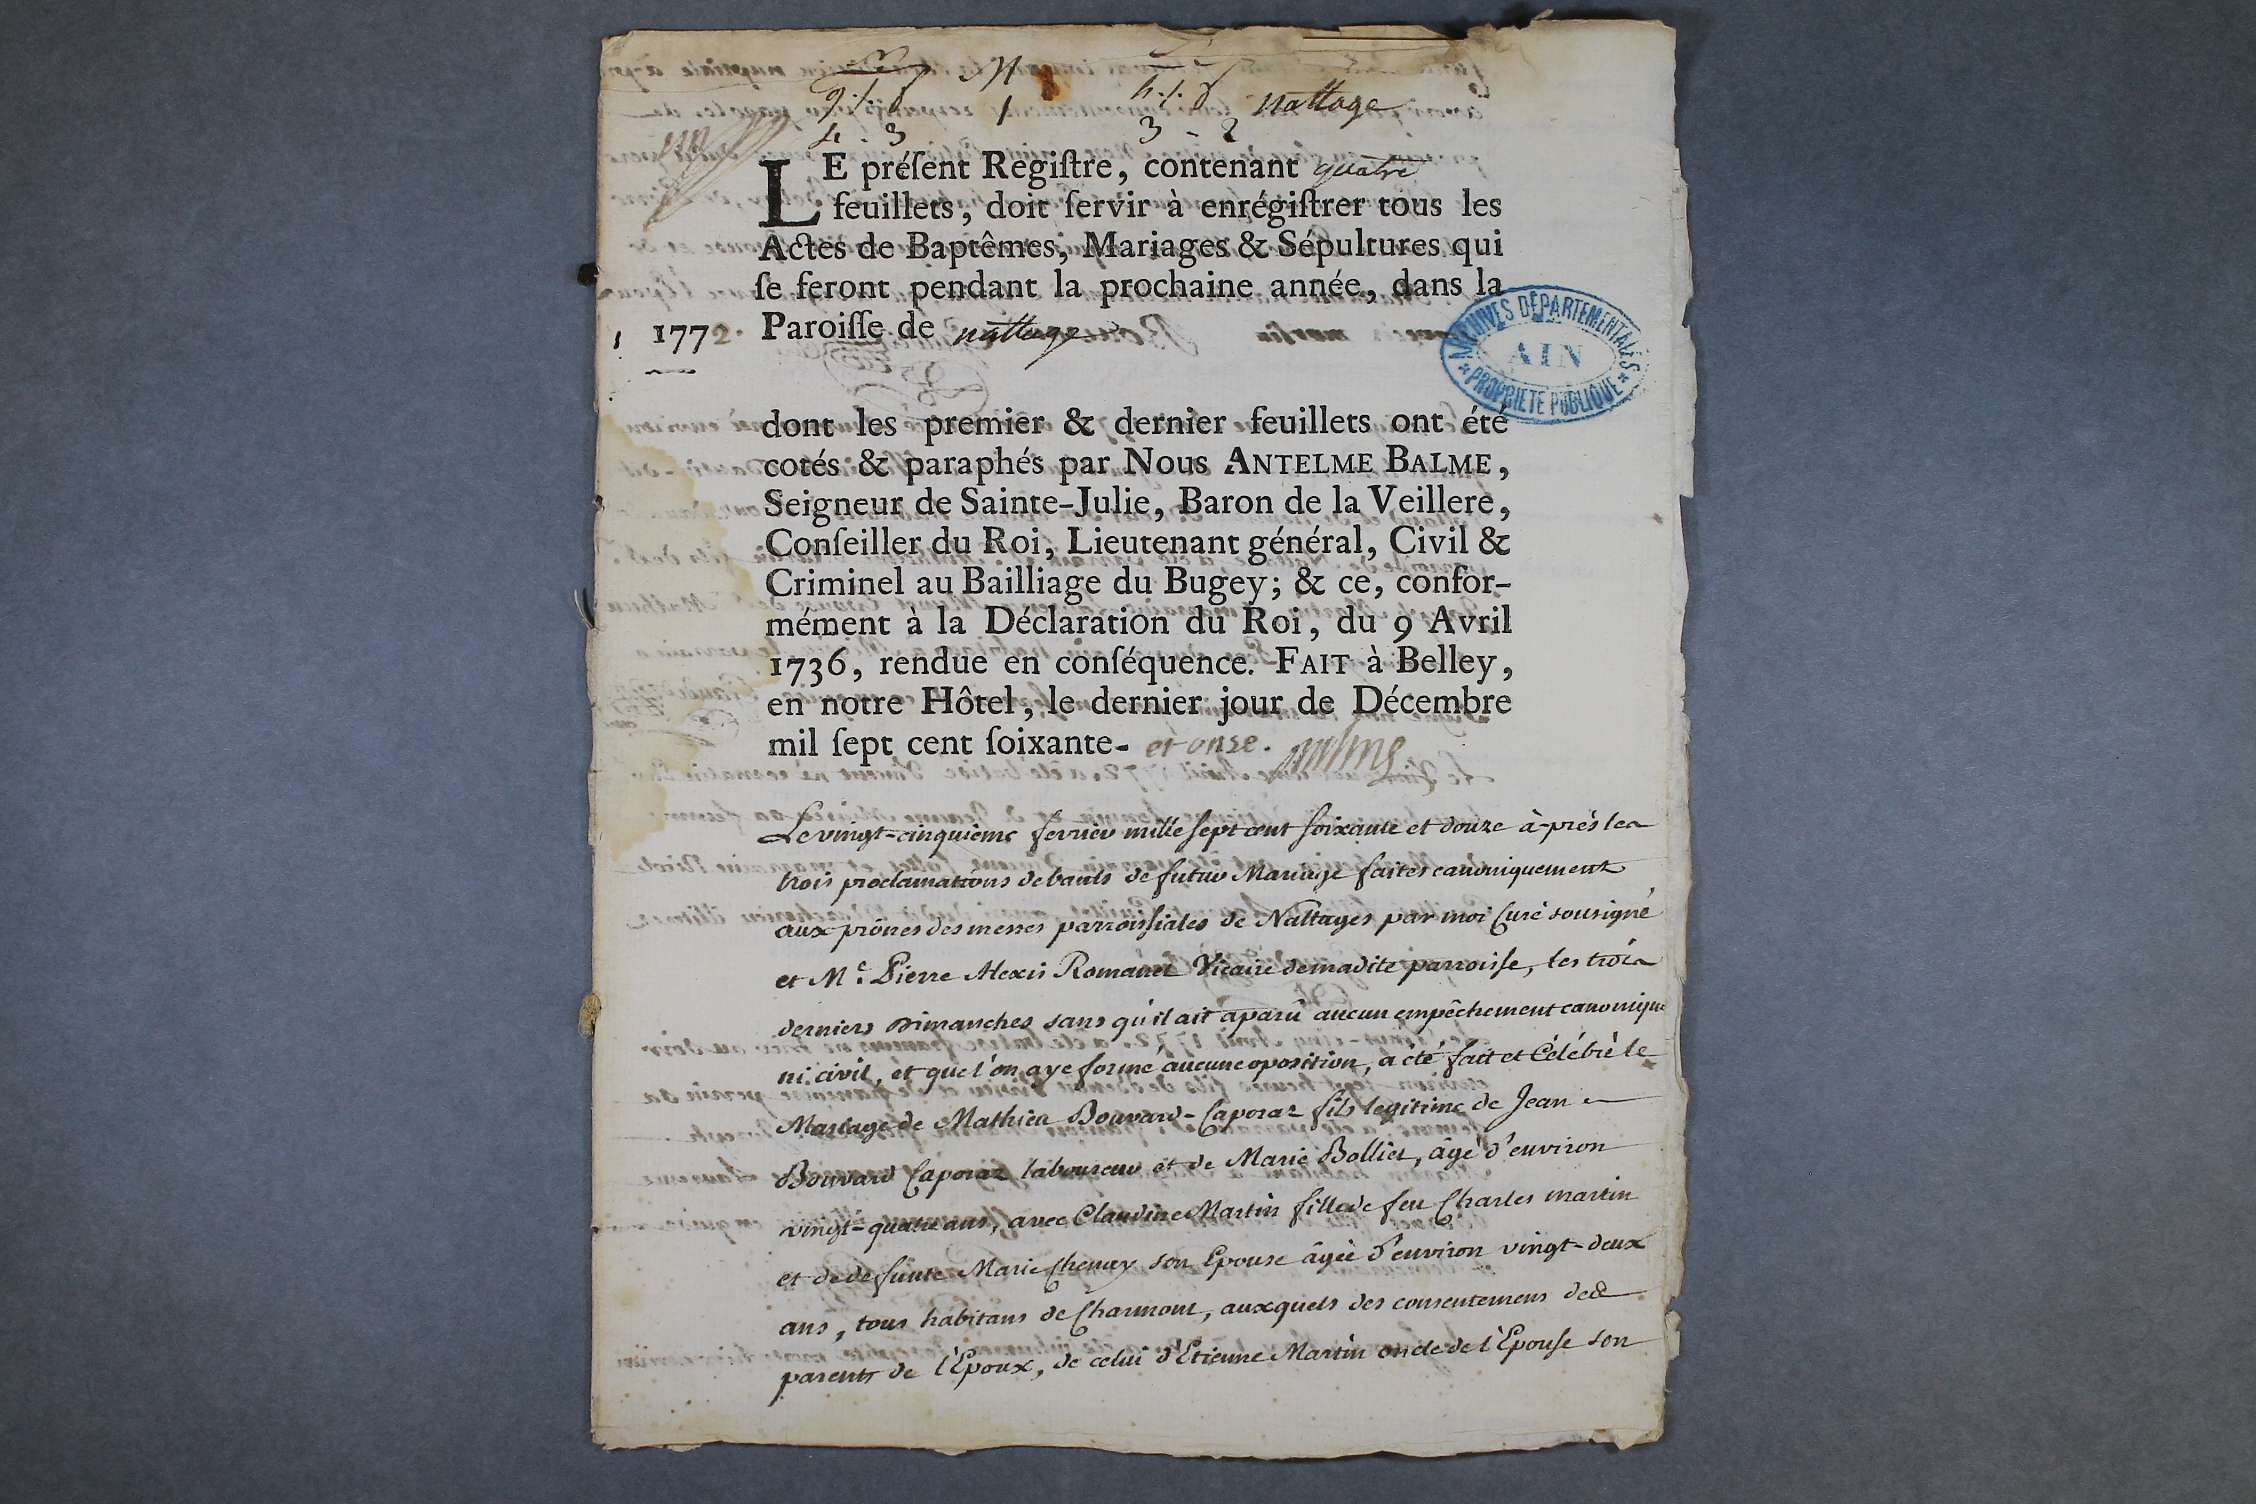 M
9./. 1 h./. nattage
4 . 3 3 - 2
LE préſent Regiſtre, contenant quatre
feuillets, doit ſervir à enrégiſtrer tous les
Actes de Baptêmes, Mariages & Sépultures qui
ſe feront pendant la prochaine année, dans la
1772. Paroiſſe de nattage
ARCHIVES DÉPARTEMENTALES
AIN
* PROPRIÉTÉ PUBLIQUE *
dont les premier & dernier feuillets ont été
cotés & paraphés par Nous ANTELME BALME,
Seigneur de Sainte-Julie, Baron de la Veillere,
Conſeiller du Roi, Lieutenant général, Civil &
Criminel au Bailliage du Bugey; & ce, confor-
mément à la Déclaration du Roi, du 9 Avril
1736, rendue en conſéquence. FAIT à Belley,
en notre Hôtel, le dernier jour de Décembre
mil ſept cent ſoixante- et onze. Balme
Le vingt-cinquième fevrier mille sept cent soixante et douze à-près les
trois proclamations de bants de futur Mariage faites canoniquement
aux prônes des messes parroissiales de Nattages par moi Curé sousigné
et Me. Pierre Alexis Romanet Vicaire de madite parroisse, les trois
derniers Dimanches sans qu'il ait aparû aucun empêchement canonique
ni civil, et que l'on aye formé aucune oposition, a été fait et Célébré le
Mariage de Mathieu Bouvard-Caporaz fils legitime de Jean
Bouvard Caporaz laboureur et de Marie Bolliet, âgé d'environ
vingt-quatre ans, avec Claudine Martin fille de feu Charles martin
et de defunte Marie Chenay son Epouse âgée d'environ vingt-deux
ans, tous habitans de Charmont, auxquels des consentemens des
parents de l'Epoux, de celui d'Etienne Martin oncle de l'Epouse son